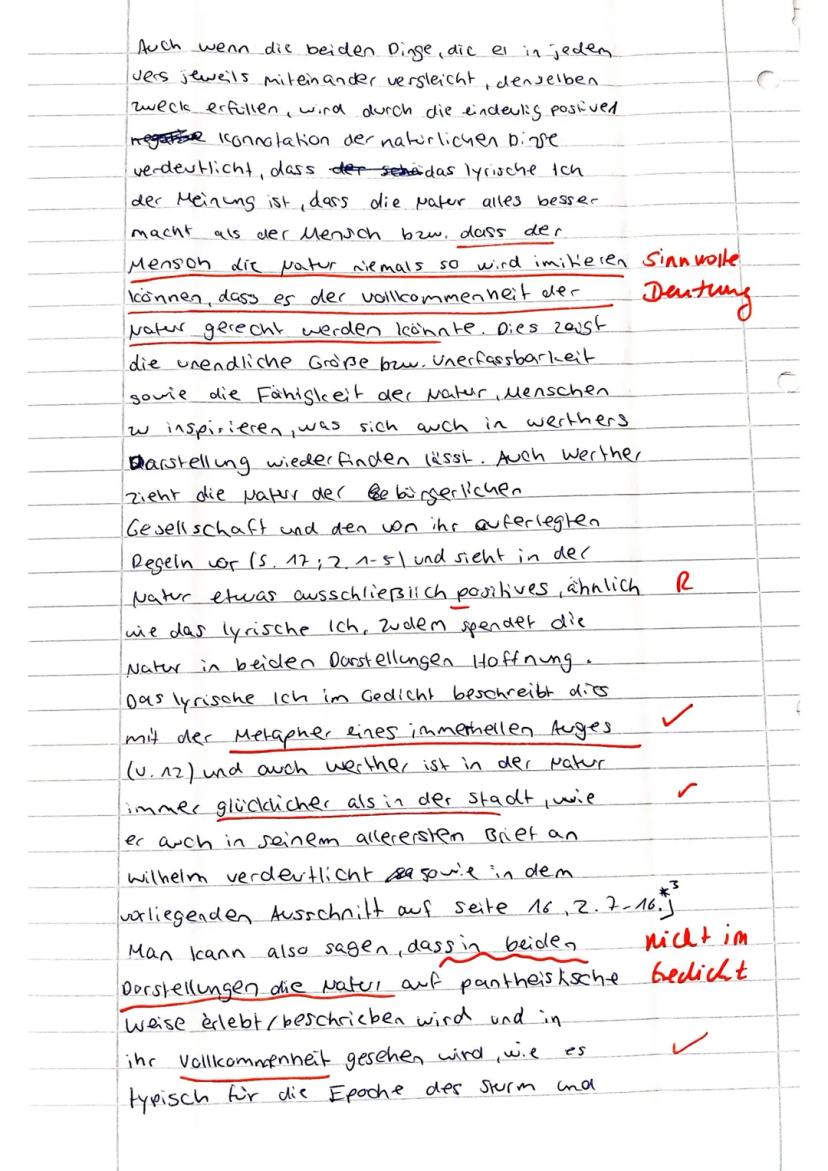 Auch wenn die beiden Dinge, die er in jedem
Vers jeweils miteinander vergleicht, denselben
Zweck erfüllen, wird durch die eindeutig postived
negative Konnotation der natürlichen Dinge
verdeutlicht, dass der das lyrische Ich
der Meinung ist, dass die Natur alles besser
macht als der Mensch bzw. dass der
Mensch die Natur niemals so wird imitieren Sinnvolle
können, dass es der Vollkommenheit der Deutung
Natur gerecht werden könnte. Dies zeigt
die unendliche Größe bzw. Unerfassbarkeit
sowie die Fähigkeit der Natur, Menschen
zu inspirieren, was sich auch in Werthers
Darstellung wiederfinden lässt. Auch Werther
zieht die Natur der bürgerlichen
Gesellschaft und den von ihr auferlegten
Regeln vor (S. 17; Z. 1-5) und sieht in der
Natur etwas ausschließlich positives, ähnlich R
wie das lyrische Ich. Zudem spendet die
Natur in beiden Darstellungen Hoffnung.
Das lyrische Ich im Gedicht beschreibt dies
mit der Metapher eines immerhellen Auges ✓
(V. 12) und auch Werther ist in der Natur
immer glücklicher als in der Stadt, wie ✓
er auch in seinem allerersten Brief an
Wilhelm verdeutlicht sowie in dem
vorliegenden Ausschnitt auf Seite 16, Z. 7-16. *3
Man kann also sagen, dass in beiden nicht im
Darstellungen die Natur auf pantheistische Gedicht
Weise erlebt/beschrieben wird und in
ihr Vollkommenheit gesehen wird, wie es ✓
typisch für die Epoche des Sturm und